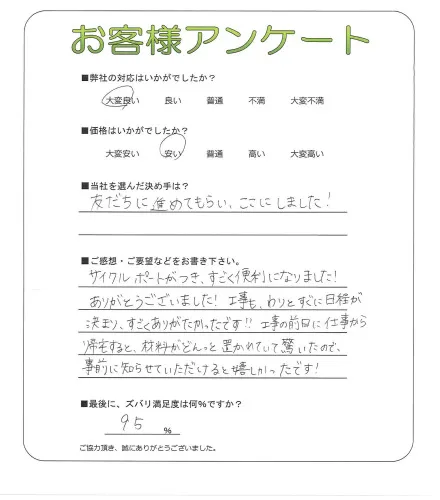 お客様アンケート
■弊社の対応はいかがでしたか？
大変良い 良い 普通 不満 大変不満
■価格はいかがでしたか？
大変安い 安い 普通 高い 大変高い
■当社を選んだ決め手は？
友だちに進めてもらい、ここにしました!
■ご感想・ご要望などをお書き下さい。
サイクルポートがつき、すごく便利になりました!
ありがとうございました! 工事も、わりとすぐに日程が
決まり、すごくありがたかったです!! 工事の前日に仕事から
帰宅すると、材料がどんっと置かれていて驚いたので、
事前に知らせていただけると嬉しかったです!
■最後に、ズバリ満足度は何％ですか？
95 %
ご協力頂き、誠にありがとうございました。